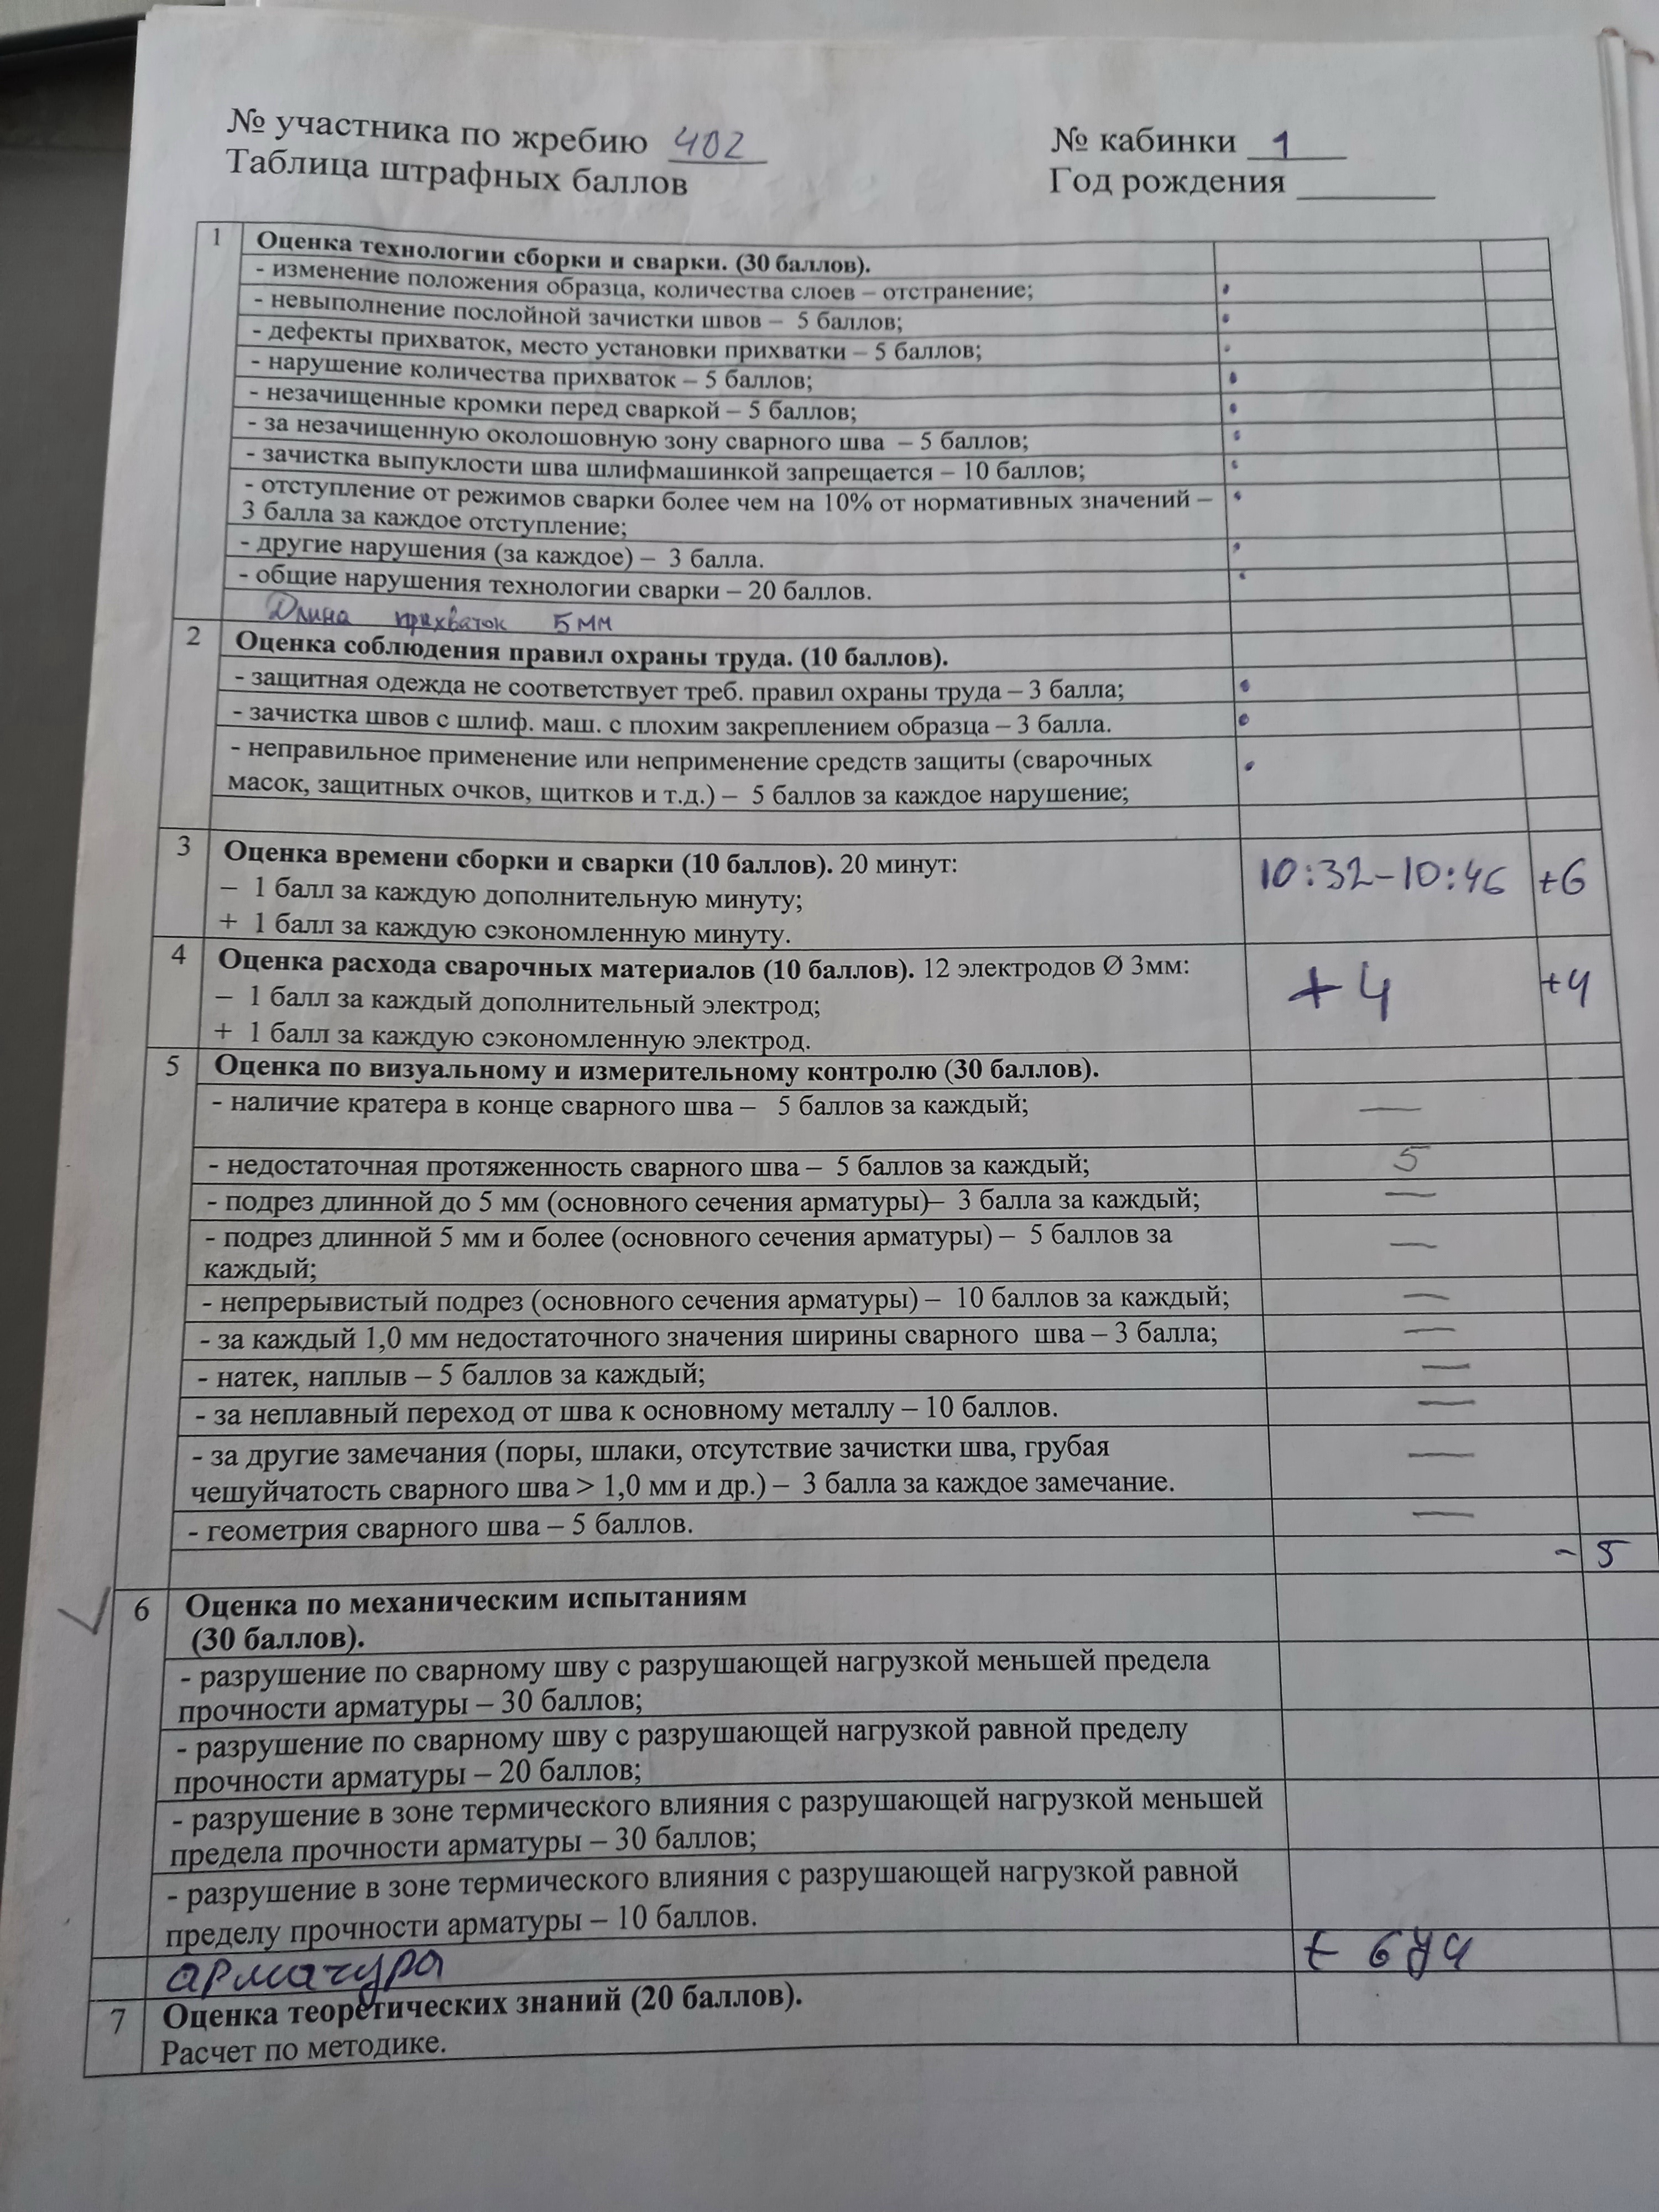 № участника по жребию 402
№ кабинки 1
Таблица штрафных баллов
Год рождения
1 Оценка технологии сборки и сварки. (30 баллов).
- изменение положения образца, количества слоев – отстранение;
- невыполнение послойной зачистки швов – 5 баллов;
- дефекты прихваток, место установки прихватки – 5 баллов;
- нарушение количества прихваток – 5 баллов;
- незачищенные кромки перед сваркой – 5 баллов;
- за незачищенную околошовную зону сварного шва – 5 баллов;
- зачистка выпуклости шва шлифмашинкой запрещается – 10 баллов;
- отступление от режимов сварки более чем на 10% от нормативных значений –
3 балла за каждое отступление;
- другие нарушения (за каждое) – 3 балла.
- общие нарушения технологии сварки – 20 баллов.
Длина прихваток 5мм
2 Оценка соблюдения правил охраны труда. (10 баллов).
- защитная одежда не соответствует треб. правил охраны труда – 3 балла;
- зачистка швов с шлиф. маш. с плохим закреплением образца – 3 балла.
- неправильное применение или неприменение средств защиты (сварочных
масок, защитных очков, щитков и т.д.) – 5 баллов за каждое нарушение;
3 Оценка времени сборки и сварки (10 баллов). 20 минут: 10:32-10:46 +6
– 1 балл за каждую дополнительную минуту;
+ 1 балл за каждую сэкономленную минуту.
4 Оценка расхода сварочных материалов (10 баллов). 12 электродов Ø 3мм: +4 +4
– 1 балл за каждый дополнительный электрод;
+ 1 балл за каждую сэкономленную электрод.
5 Оценка по визуальному и измерительному контролю (30 баллов).
- наличие кратера в конце сварного шва – 5 баллов за каждый; —
- недостаточная протяженность сварного шва – 5 баллов за каждый; 5
- подрез длинной до 5 мм (основного сечения арматуры)– 3 балла за каждый; —
- подрез длинной 5 мм и более (основного сечения арматуры) – 5 баллов за —
каждый;
- непрерывистый подрез (основного сечения арматуры) – 10 баллов за каждый; —
- за каждый 1,0 мм недостаточного значения ширины сварного шва – 3 балла; —
- натек, наплыв – 5 баллов за каждый; —
- за неплавный переход от шва к основному металлу – 10 баллов. —
- за другие замечания (поры, шлаки, отсутствие зачистки шва, грубая —
чешуйчатость сварного шва > 1,0 мм и др.) – 3 балла за каждое замечание.
- геометрия сварного шва – 5 баллов. —
- 5
6 Оценка по механическим испытаниям
(30 баллов).
- разрушение по сварному шву с разрушающей нагрузкой меньшей предела
прочности арматуры – 30 баллов;
- разрушение по сварному шву с разрушающей нагрузкой равной пределу
прочности арматуры – 20 баллов;
- разрушение в зоне термического влияния с разрушающей нагрузкой меньшей
предела прочности арматуры – 30 баллов;
- разрушение в зоне термического влияния с разрушающей нагрузкой равной
пределу прочности арматуры – 10 баллов.
арматура
7 Оценка теоретических знаний (20 баллов).
Расчет по методике.